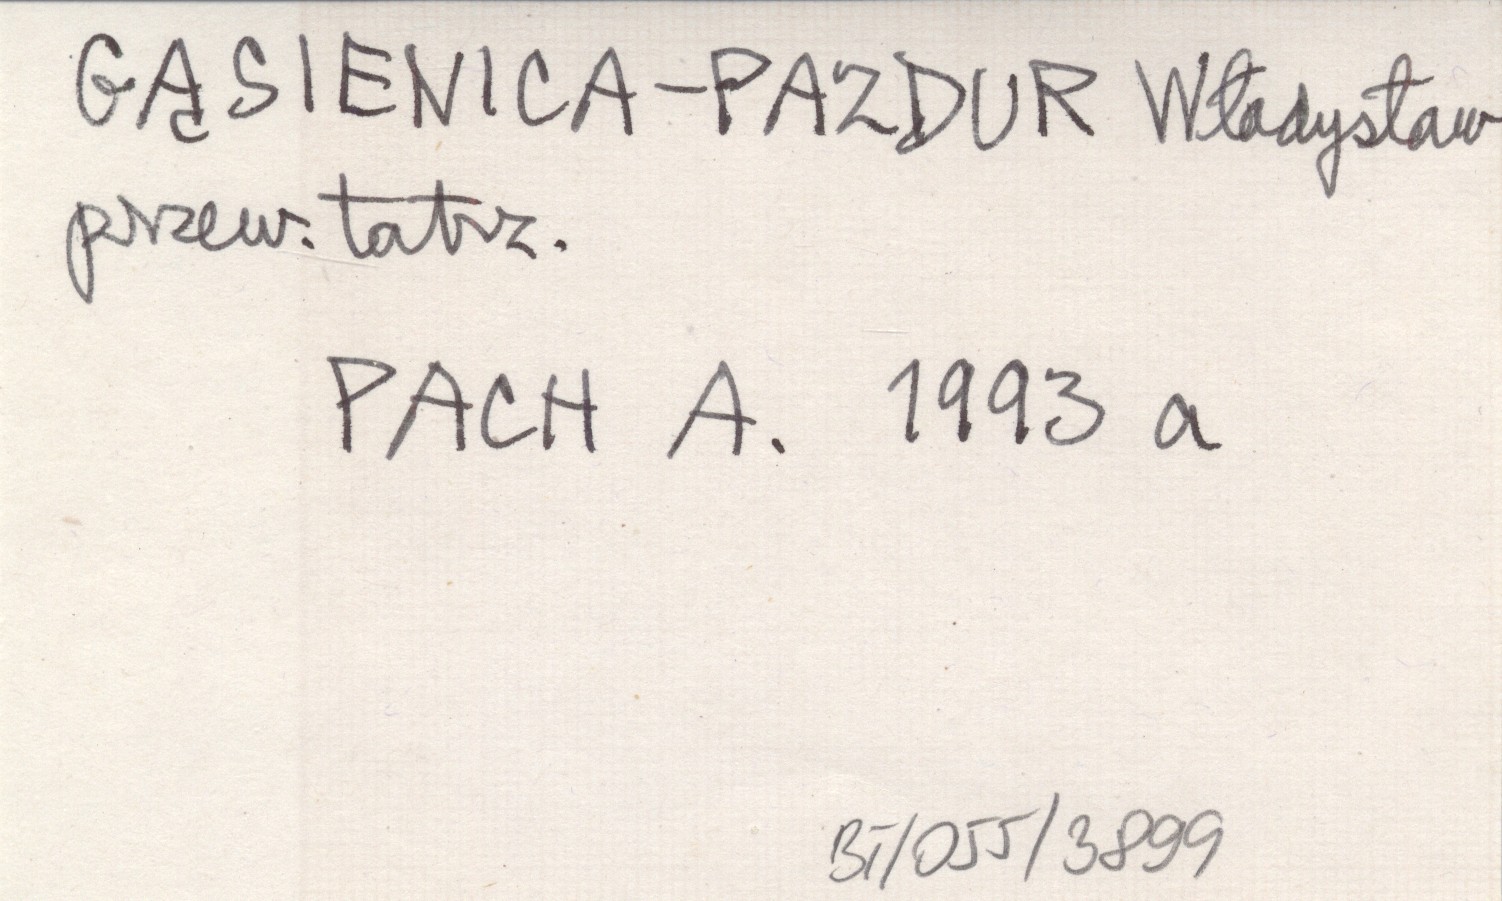 GĄSIENICA-PAZDUR Władysław
przew. tatrz.
PACH A. 1993 a
BT/055/3899